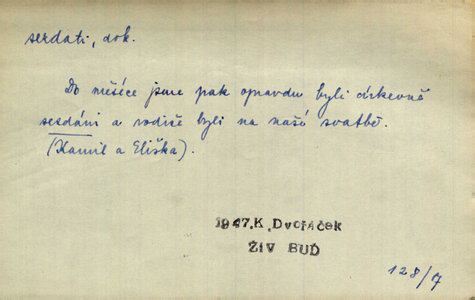 sezdati, dok.
Do měsíce jsme pak opravdu byli církevně
sezdáni a rodiče byli na naší svatbě.
(Kamil a Eliška).
1947.K.Dvořáček
ŽIV BUĎ
128/7